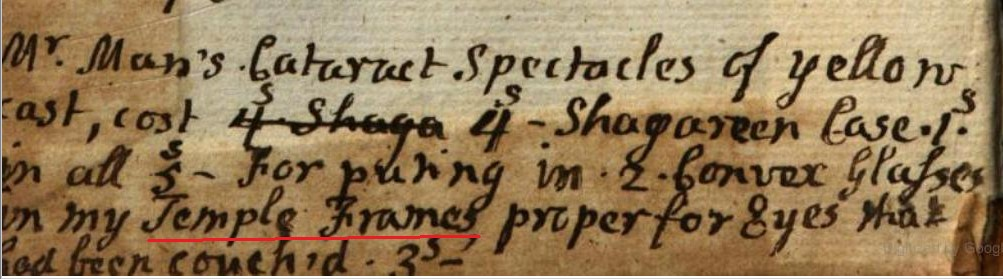 Mr. Man's Cataract Spectacles of yellow
cast, cost 4s Shaga 4s - Shagareen Case. 1s.
in all 5s - For puting in 2. Convex Glasses
in my Temple Frames proper for Eyes that
had been couch'd. 3s -